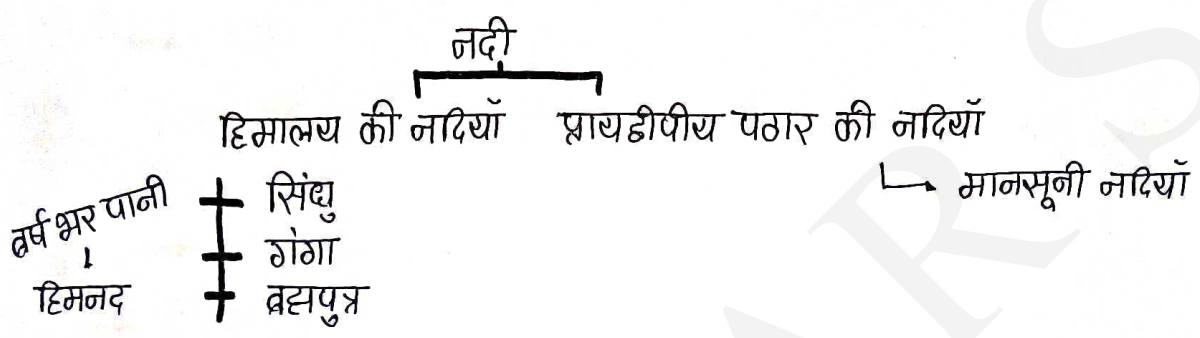 नदी
हिमालय की नदियाँ प्रायद्वीपीय पठार की नदियाँ
मानसूनी नदियाँ
वर्ष भर पानी सिंधु
गंगा
हिमनद ब्रह्मपुत्र
ARS